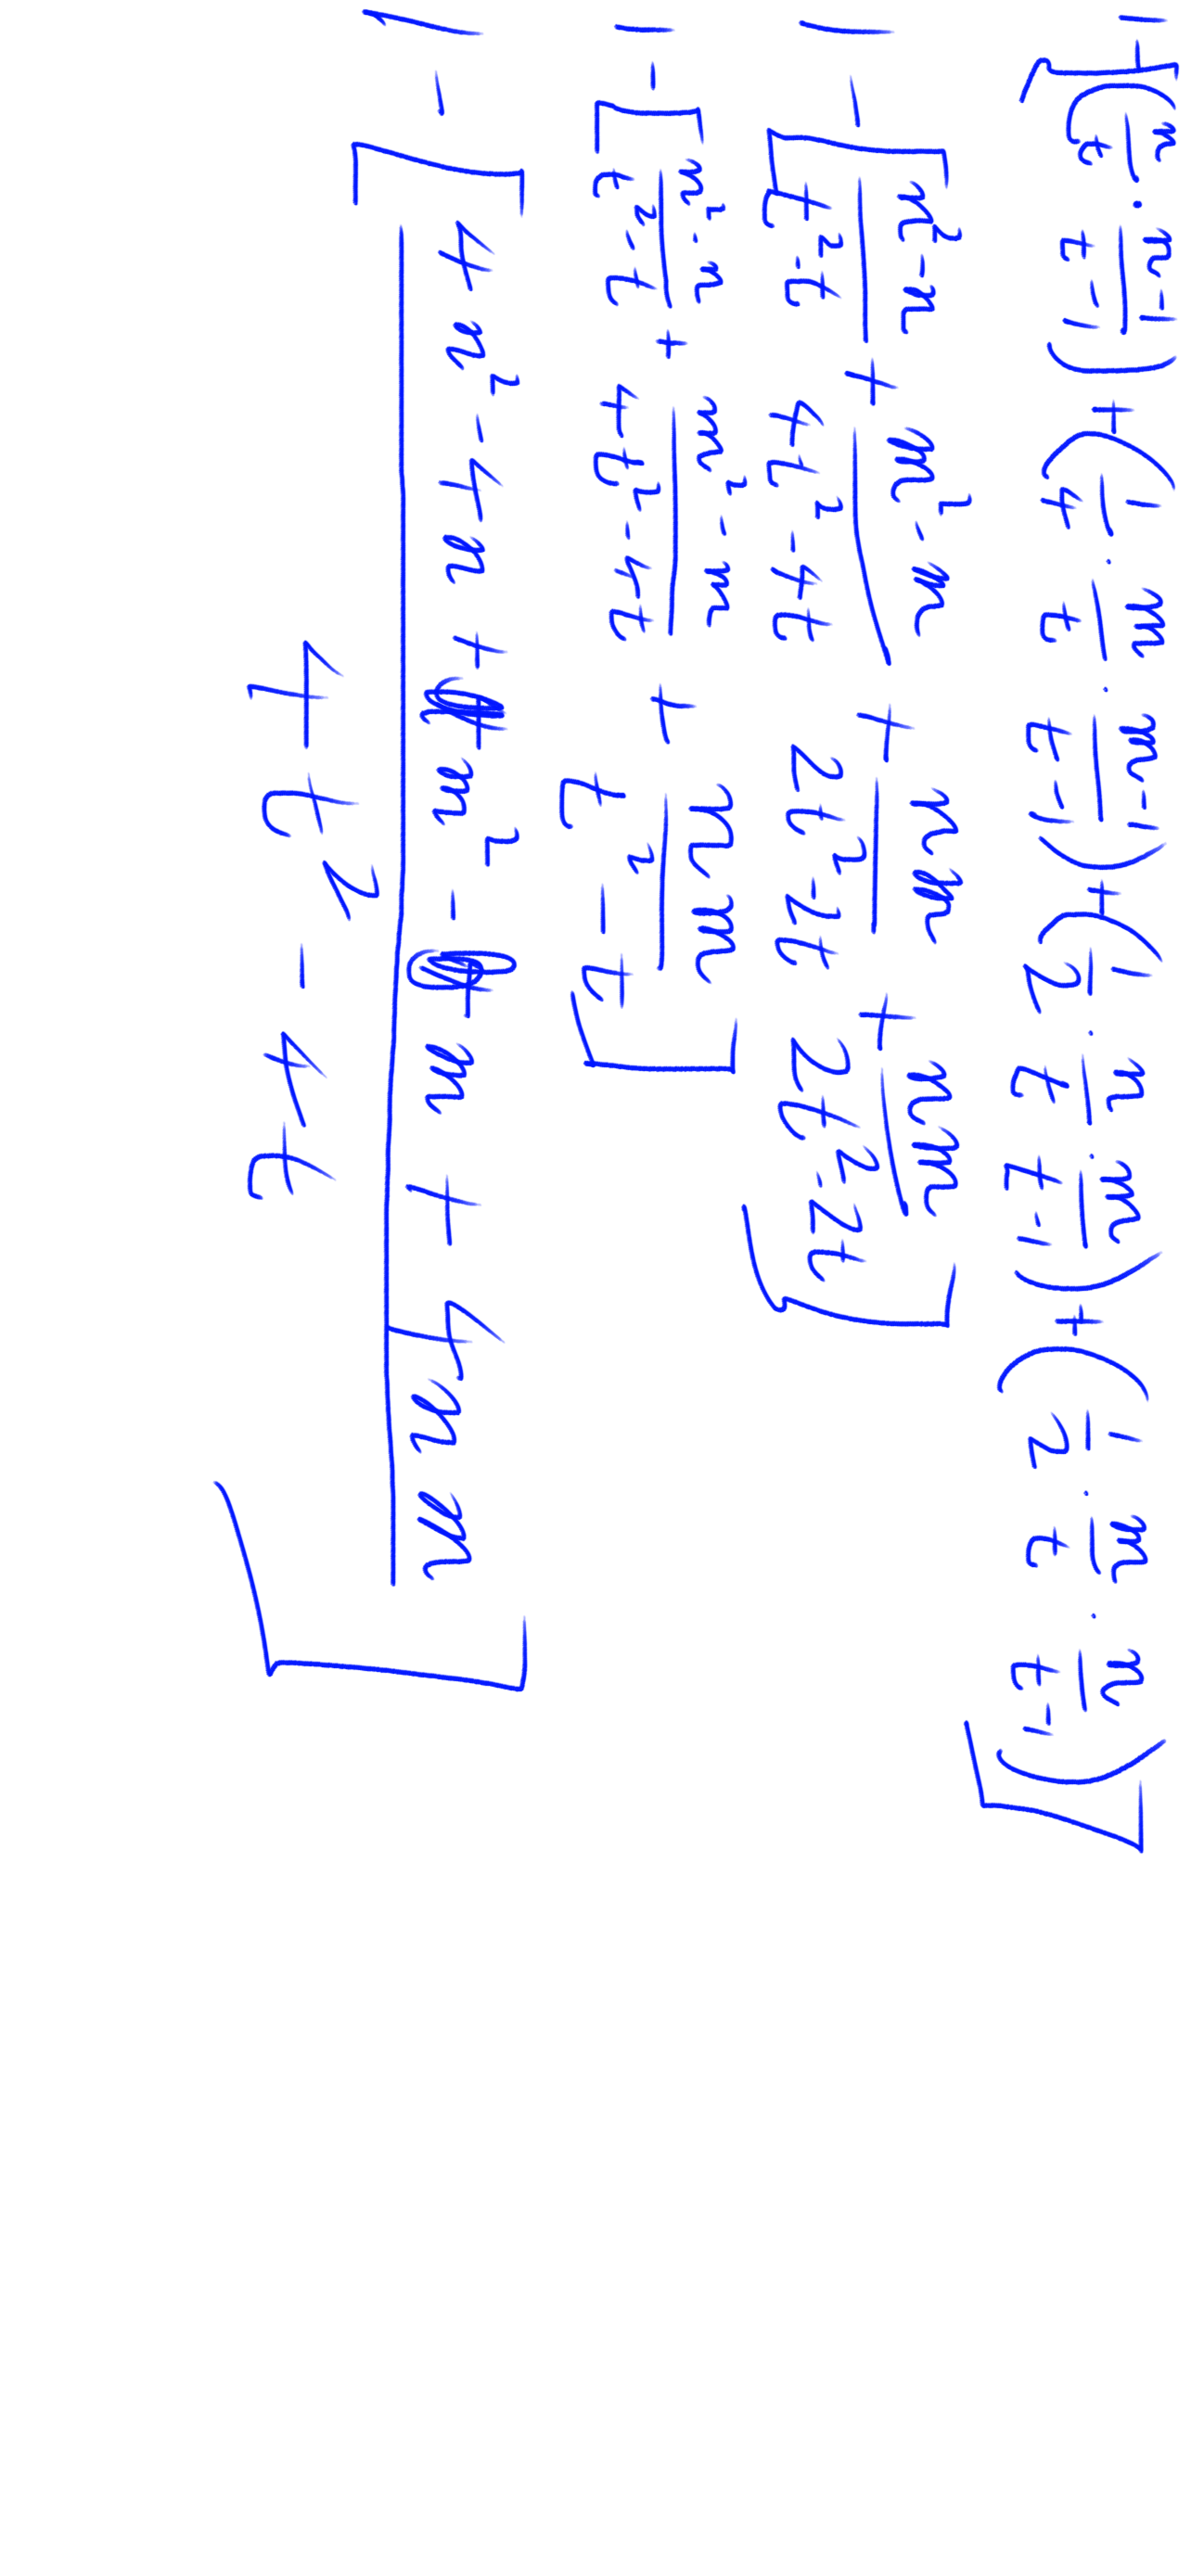 1 - [(n/t · n-1/t-1) + (1/4 · m/t · m-1/t-1) + (1/2 · n/t · m/t-1) + (1/2 · m/t · n/t-1)]
1 - [n²-n/t²-t + m²-m/4t²-4t + nm/2t²-2t + nm/2t²-2t]
1 - [n²-n/t²-t + m²-m/4t²-4t + nm/t²-t]
1 - [4n²-4n+m²-m+4nm/4t²-4t]